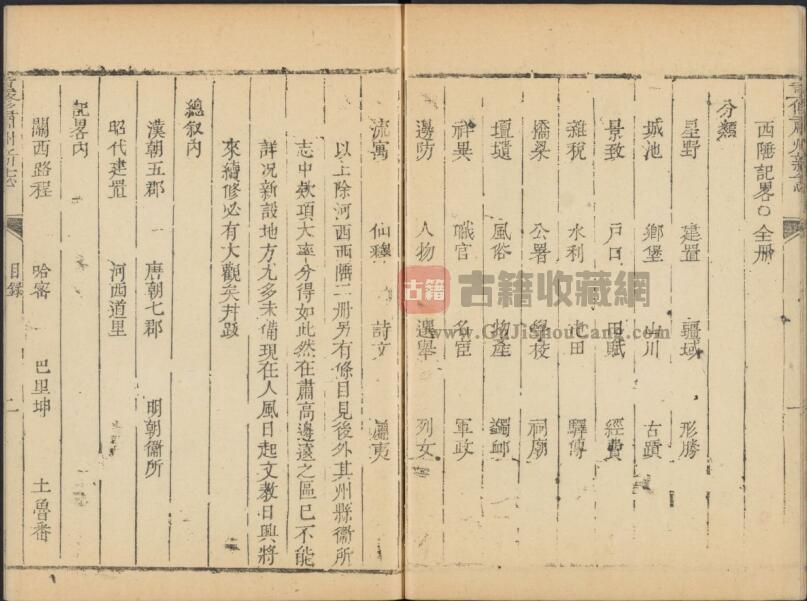 西陲記畧○全册
分類
星野 建置 疆域 形勝
城池 鄉堡 山川 古蹟
景致 戶口 田賦 經費
雜稅 水利 屯田 驛傳
橋梁 公署 學校 祠廟
壇壝 風俗 物產 蠲邺
祥異 職官 名宦 軍政
邊防 人物 選舉 列女
流寓 仙釋 詩文 屬夷
以上除河西西陲二册另有條目見後外其州縣衞所
志中欵項大率分得如此然在肅高邊遠之區已不能
詳况新設地方尤多未備現在人風日起文教日興將
來續修必有大觀矣幷跋
總叙內
漢朝五郡 唐朝七郡 明朝衞所
昭代建置 河西道里
記畧內
關西路程 哈密 巴里坤 土魯番
重修肅州新志
目錄
二
古籍
古籍收藏網
www.GuJiShouCang.com